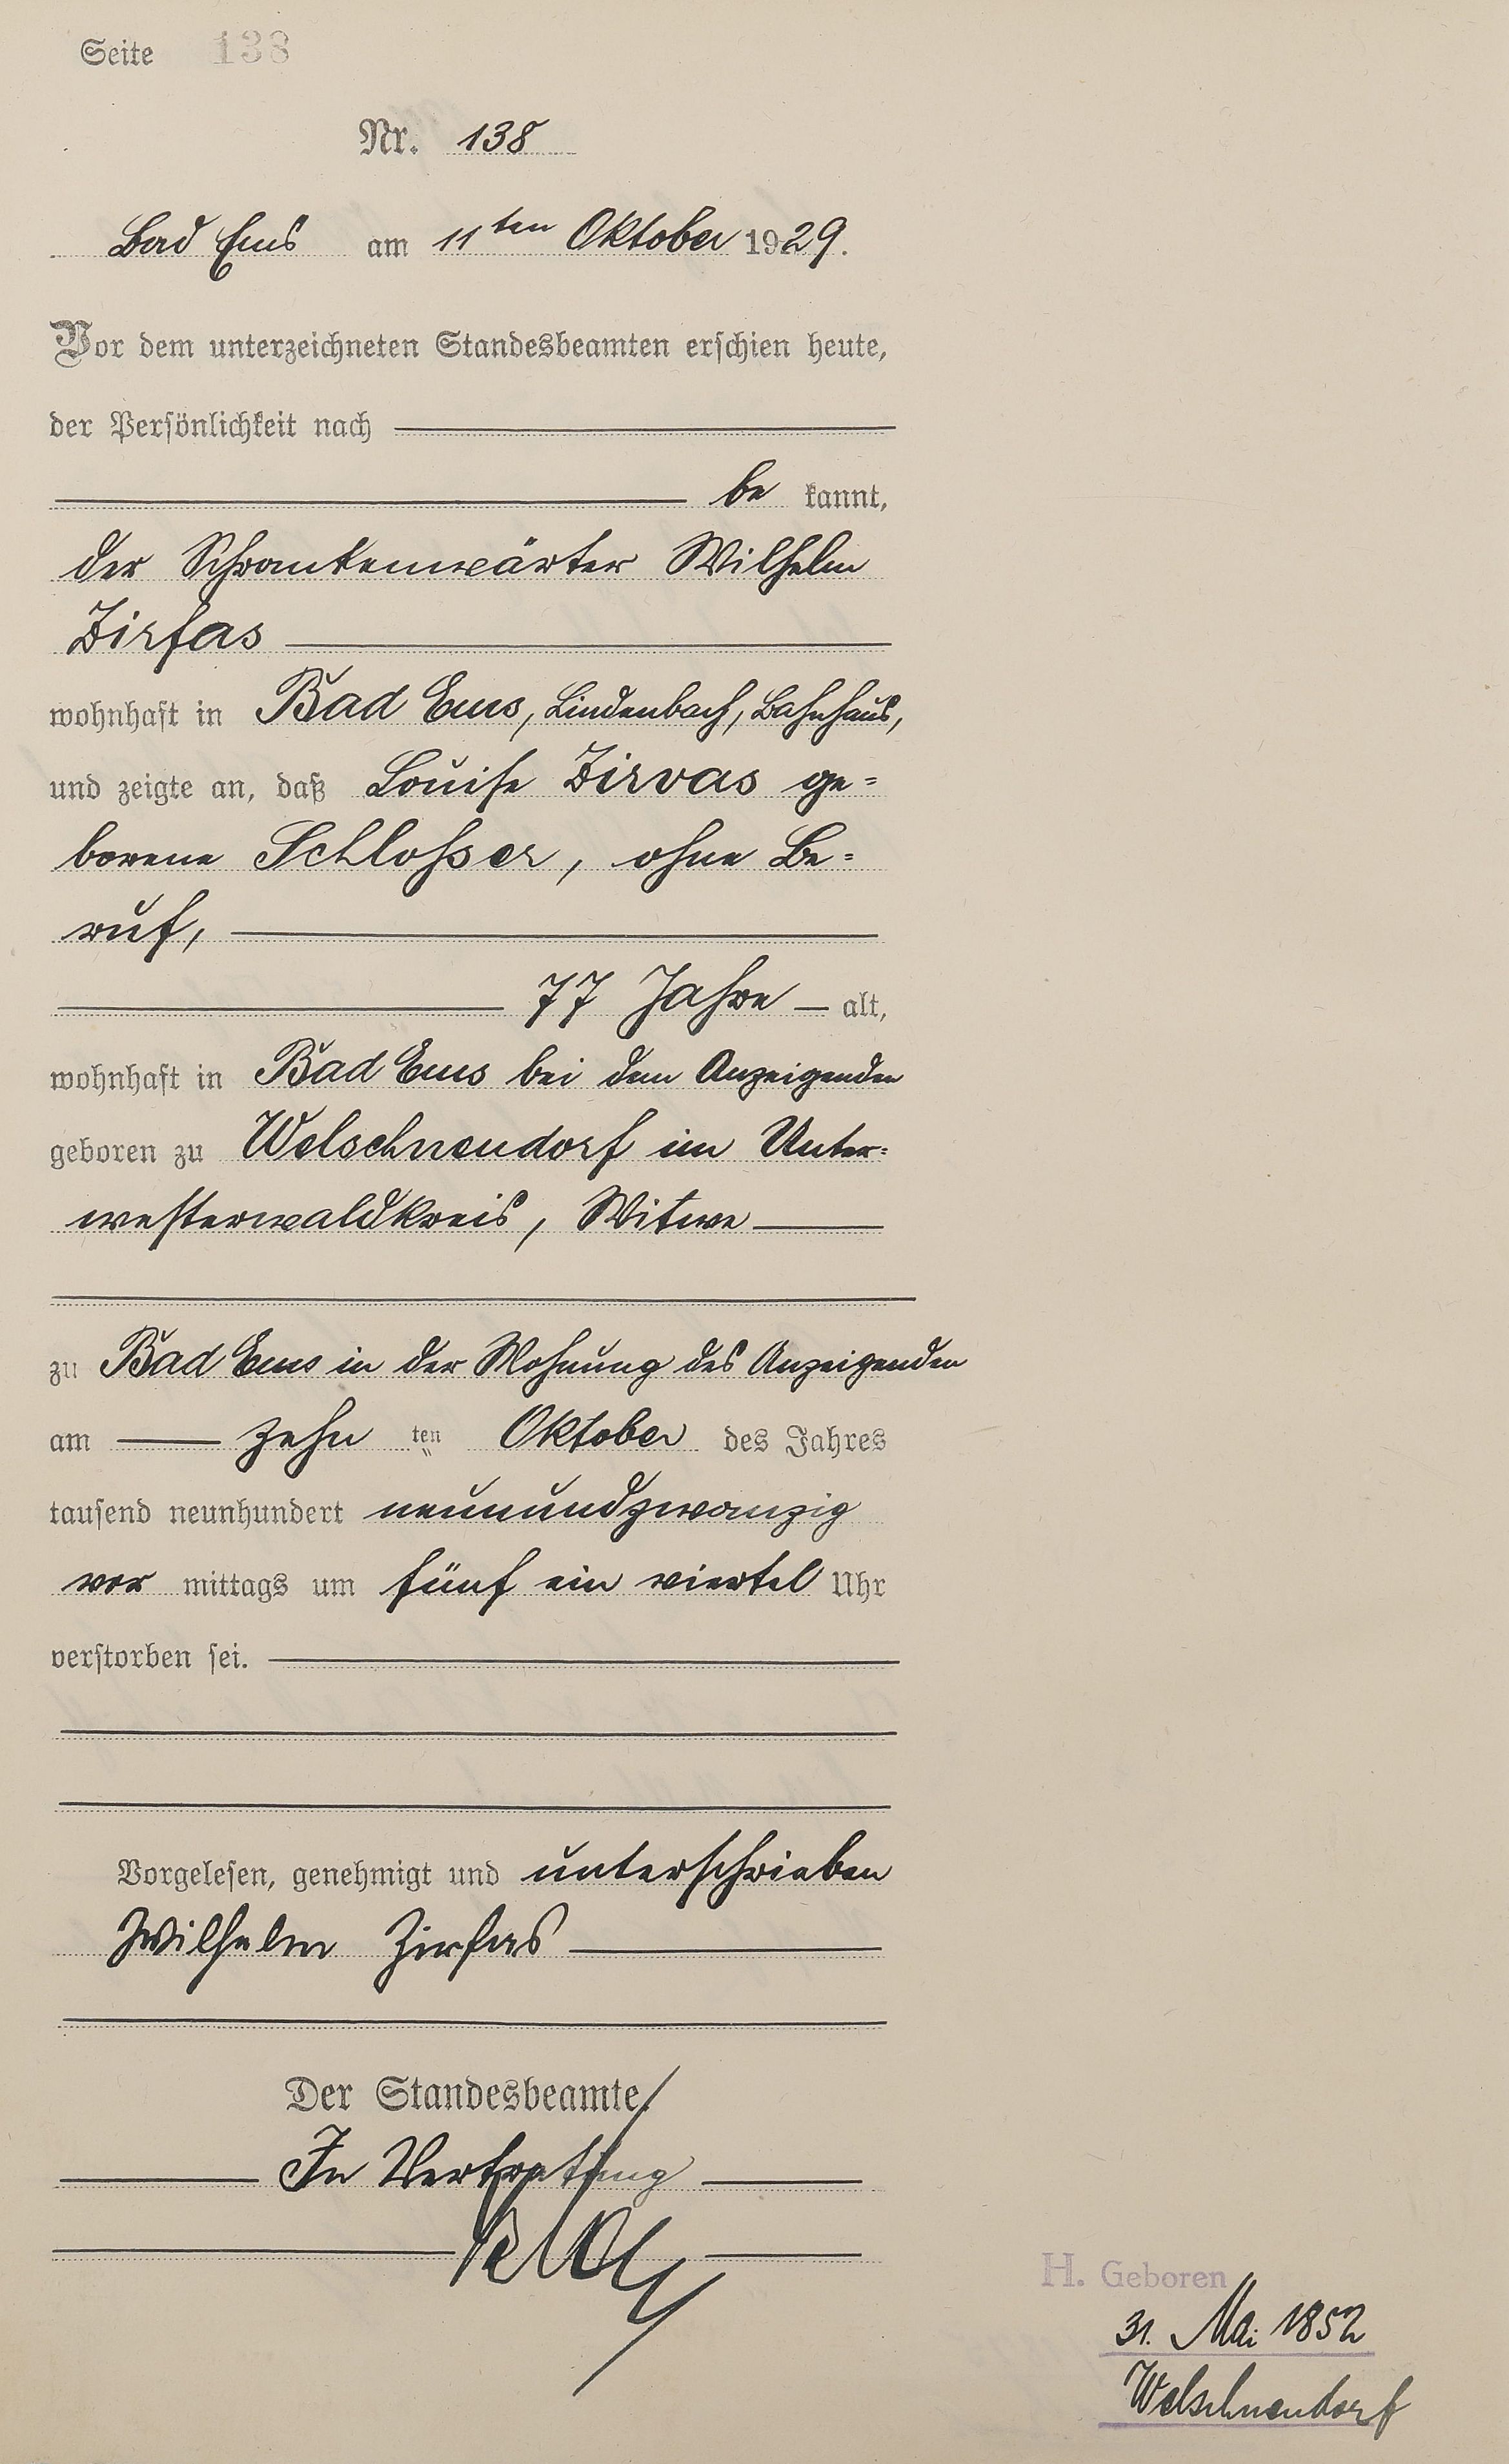 Seite 138
Nr. 138
Bad Ems am 11ten Oktober 1929.
Vor dem unterzeichneten Standesbeamten erschien heute,
der Persönlichkeit nach
be kannt,
der Schrankenwärter Wilhelm
Zirfas
wohnhaft in Bad Ems, Lindenbach, Bahnhaus,
und zeigte an, daß Louise Zirvas ge=
borene Schlosser, ohne Be=
ruf,
77 Jahre alt,
wohnhaft in Bad Ems bei dem Anzeigenden
geboren zu Welschneudorf im Unter=
westerwaldkreis, Witwe
zu Bad Ems in der Wohnung des Anzeigenden
am zehn ten Oktober des Jahres
tausend neunhundert neunundzwanzig
vor mittags um fünf ein viertel Uhr
verstorben sei.
Vorgelesen, genehmigt und unterschrieben
Wilhelm Zirfas
Der Standesbeamte.
In Vertretung
H. Geboren
31. Mai 1852
Welschneudorf